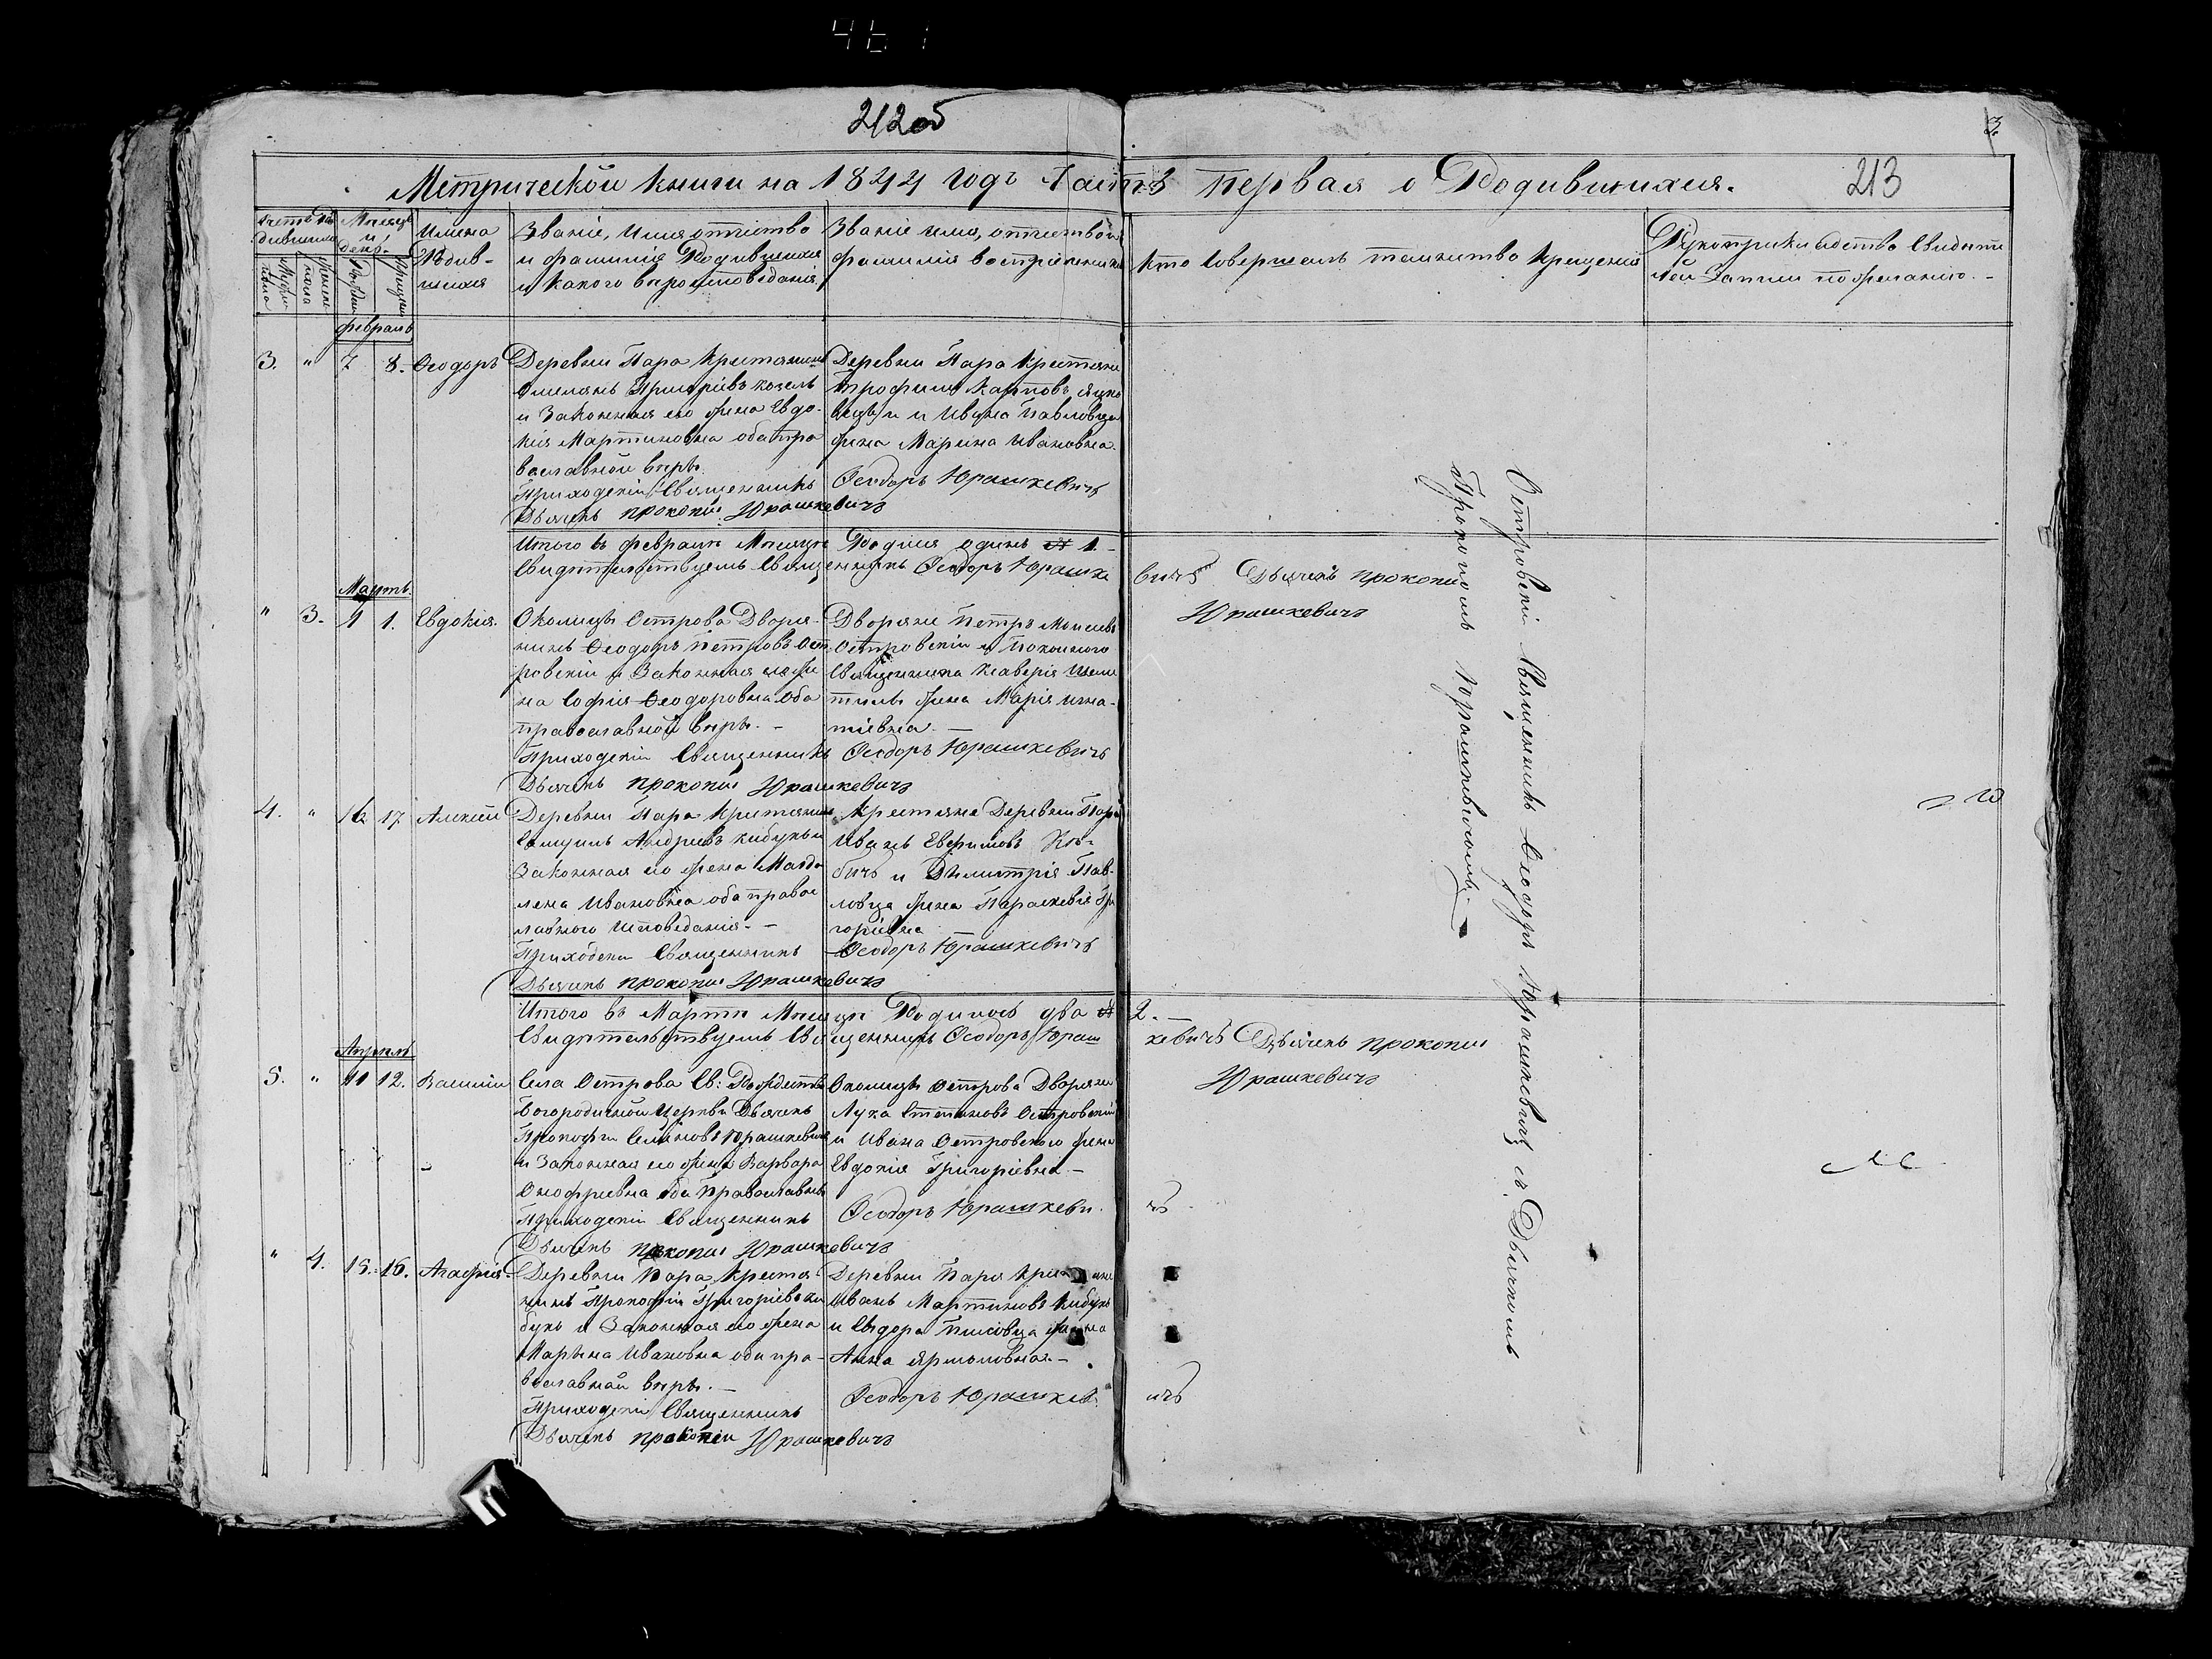 212об
3
Метрической книги на 1844 годъ Часть первая о Родившихся.
213
Имена Родив-шихся
Званіе, имя отчество и фамилія Родившихся и какого вероисповеданія
Званіе имя, отчество и фамилія воспріемниковъ
Кто совершалъ таинство крещенія
Рукоприкладство свидѣтелей записи по желанію. -
февраль
3. " 7 8. Ѳеодоръ
Деревни Пара Крестьянинъ
Григоріевъ козелъ
и Законная его жена Евдо-
кія Мартиновна оба пра
вославной веры.
Приходскій Священникъ
Дьячекъ прокопій Юрашкевичъ
Деревни Пара Крестьяне
Трофимъ Карповъ
и Ивана Павловца
жена Марина Ивановна.
Ѳеодоръ Юрашкевичъ
Итого въ февралѣ Месяце Родился одинъ 1. -
Свидѣтельствуемъ Священникъ Ѳеодоръ Юрашке
вичъ Дьячекъ прокопій
Юрашкевичъ
Мартъ
" 3. 1 1. Евдокія.
Околицы Острова Дворя-
нинъ Ѳеодоръ Петровъ Ост-
ровскій и Законная его же
на Софія Ѳеодоровна оба
православной веры. -
Приходскій Священникъ
Дьячекъ прокопій Юрашкевичъ
Дворяне Петръ Моисеевъ
Островскій и покойного
Священника Ксаверія
жена Марія Игна-
тіевна. -
Ѳеодоръ Юрашкевичъ
4. " 16 17 Алексій
Деревни Пара Крестьянинъ
Самуилъ Андріевъ кибукъ и
Законная его жена Магда
лена Ивановна оба право
славного исповеданія. -
Приходскій Священникъ
Дьячекъ прокопій Юрашкевичъ
Крестьяне Деревни Пара
Иванъ Евфимовъ
и Димитрія Пав-
ловца жена Параскевія Гри
горіевна
Ѳеодоръ Юрашкевичъ
Итого въ Мартѣ Месяце Родилось два 2. -
Свидѣтельствуемъ Священникъ Ѳеодоръ Юраш
кевичъ Дьячекъ прокопій
Юрашкевичъ
Апрель
5. " 11 12. Василій
Села Острова Св: Рождество
Богородичной Церкви Дьячекъ
Прокофій Семеновъ Юрашкевичъ
и Законная его жена Варвара
Онофріевна оба Православны
Приходскій Священникъ
Дьячекъ прокопій Юрашкевичъ
Околицы Острова Дворяне
Лука Степановъ Островскій
и Ивана Островского жена
Евдокія Григоріевна. -
Ѳеодоръ Юрашкеви
чъ
" 4. 15. 16. Агафія.
Деревни Пара Крестья-
нинъ Прокофій Григоріевъ ки
букъ и Законная его жена
Марына Ивановна оба пра-
вославной веры. -
Приходскій Священникъ
Дьячекъ прокопіи Юрашкевичъ
Деревни Пара
Иванъ Мартиновъ Кибукъ
и Сидора жена
Анна Ярмоловна. -
Ѳеодоръ Юрашкев
ичъ
Островскій Священникъ Ѳеодоръ Юрашкевичъ съ Дьячкомъ
Прокопомъ Юрашкевичомъ. -